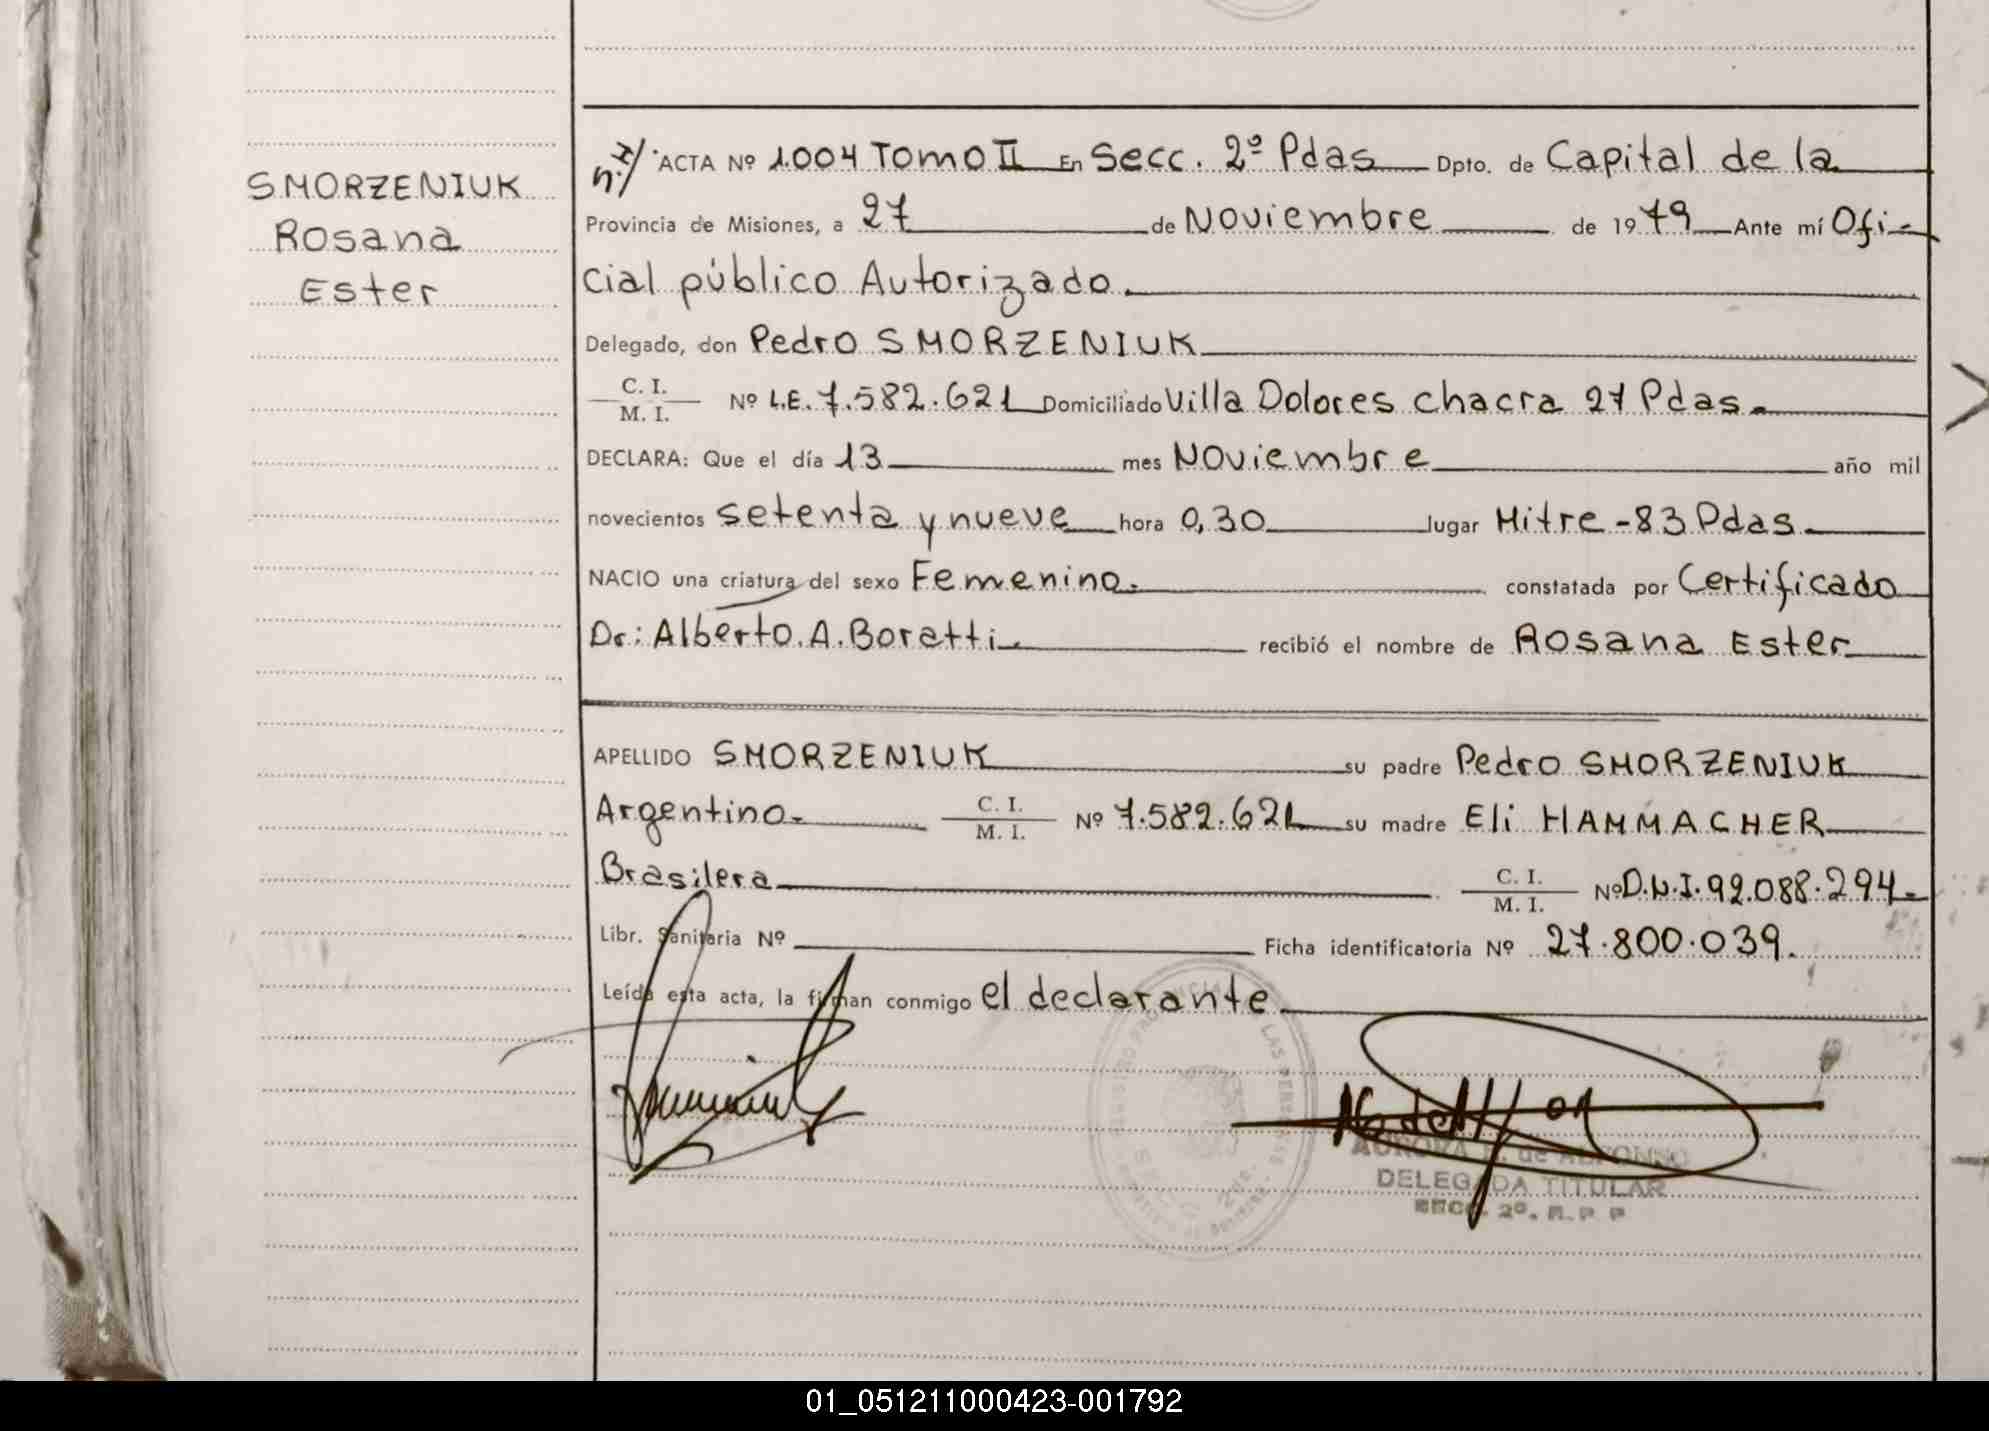 SMORZENIUK
Rosana
Ester
ACTA Nº 1.004 Tomo II En Secc. 2º Pdas Dpto. de Capital de la
Provincia de Misiones, a 27 de Noviembre de 1979 Ante mí Ofi-
cial público Autorizado.
Delegado, don Pedro SMORZENIUK
C. I.
M. I. Nº L.E. 7.582.621 Domiciliado Villa Dolores chacra 27 Pdas.
DECLARA: Que el día 13 mes Noviembre año mil
novecientos setenta y nueve hora 0,30 lugar Mitre - 83 Pdas.
NACIO una criatura del sexo Femenino. constatada por Certificado
Dr: Alberto. A. Boratti. recibió el nombre de Rosana Ester
APELLIDO SMORZENIUK su padre Pedro SMORZENIUK
Argentino. C. I.
M. I. Nº 7.582.621 su madre Eli HAMMACHER
Brasilera C. I.
M. I. Nº D.N.I. 92.088.294.
Libr. Sanitaria Nº Ficha identificatoria Nº 27.800.039.
Leída esta acta, la firman conmigo el declarante
AURORA de ALFONSO
DELEGADA TITULAR
SECC. 2º. R. P. P
01_051211000423-001792